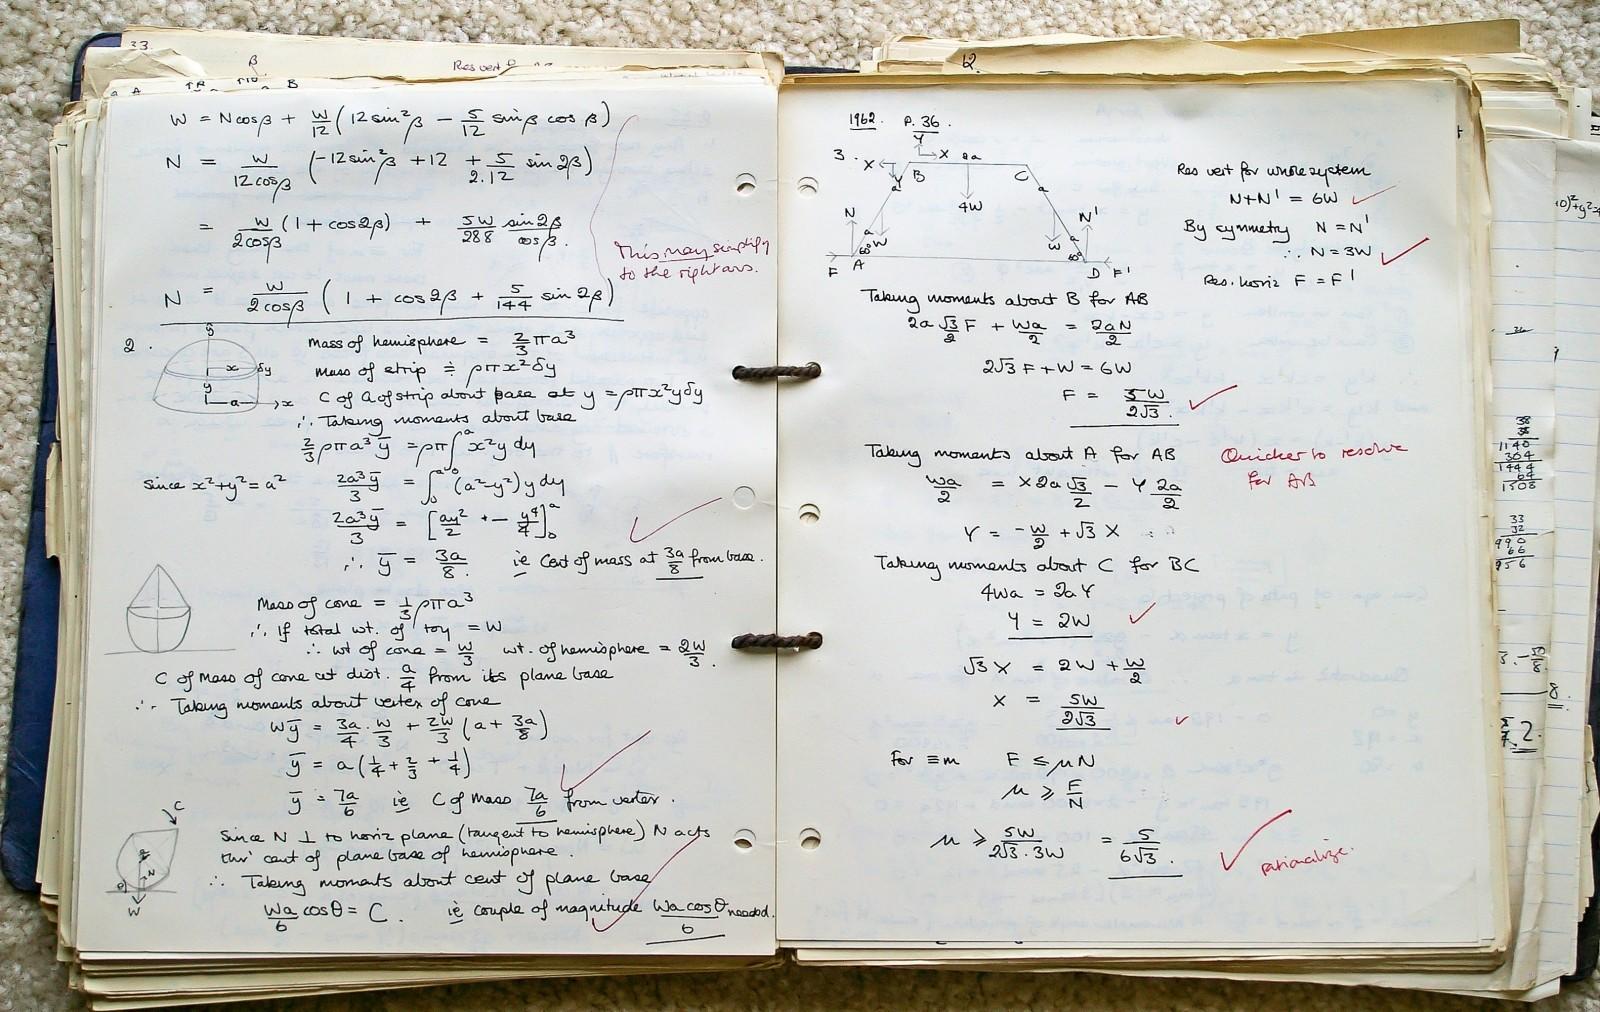 33.
β
Res vert
A B
W = Ncosβ + W/12 (12 sin²β − 5/12 sinβ cosβ)
N = W/12cosβ (−12sin²β + 12 + 5/2.12 sin 2β)
= W/2cosβ (1 + cos2β) + 5W/288 sin2β/cosβ.
This may simplify
to the right ans.
N = W/2cosβ (1 + cos2β + 5/144 sin 2β)
2.
y
x δy
y
a x
Mass of hemisphere = 2/3 πa³
Mass of strip ≑ ρπx²δy
C of G of strip about base at y = ρπx²yδy
∴ Taking moments about base
2/3 ρπa³ȳ = ρπ∫₀ᵃ x²y dy
Since x²+y² = a² 2a³ȳ/3 = ∫₀ᵃ (a²−y²) y dy
2a³ȳ/3 = [ay²/2 − y⁴/4]₀ᵃ
∴ ȳ = 3a/8. ie Cent of mass at 3a/8 from base.
Mass of cone = 1/3 ρπa³
∴ If total wt. of toy = W
∴ wt of cone = W/3 wt. of hemisphere = 2W/3.
C of Mass of cone at dist. a/4 from its plane base
∴ Taking moments about vertex of cone
Wȳ = 3a/4 · W/3 + 2W/3 (a + 3a/8)
ȳ = a(1/4 + 2/3 + 1/4)
ȳ = 7a/6 ie C of Mass 7a/6 from vertex.
C
N
W
Since N ⊥ to horiz plane (tangent to hemisphere) N acts
thr' cent of plane base of hemisphere.
∴ Taking moments about cent of plane base
Wa/6 cosθ = C. ie couple of magnitude Wa cosθ/6 needed.
62.
1962. P. 36.
3.
Y
X X 2a
Y B C
a a
4W
N N'
a W W a
60° 60°
F A D F'
Res vert for whole system
N+N' = 6W
By symmetry N = N'
∴ N = 3W
Res. horiz F = F'
Taking moments about B for AB
2a √3/2 F + Wa/2 = 2aN/2
2√3 F + W = 6W
F = 5W/2√3.
Taking moments about A for AB
Quicker to resolve
for AB
Wa/2 = X 2a √3/2 − Y 2a/2
Y = −W/2 + √3 X
Taking moments about C for BC
4Wa = 2aY
Y = 2W
√3 X = 2W + W/2
X = 5W/2√3
For ≡m F ≤ μN
μ ≥ F/N
μ ≥ 5W/2√3.3W = 5/6√3.
rationalize.
38
38
1140
304
1444
64
1508
33
32
990
66
956
8.
2.